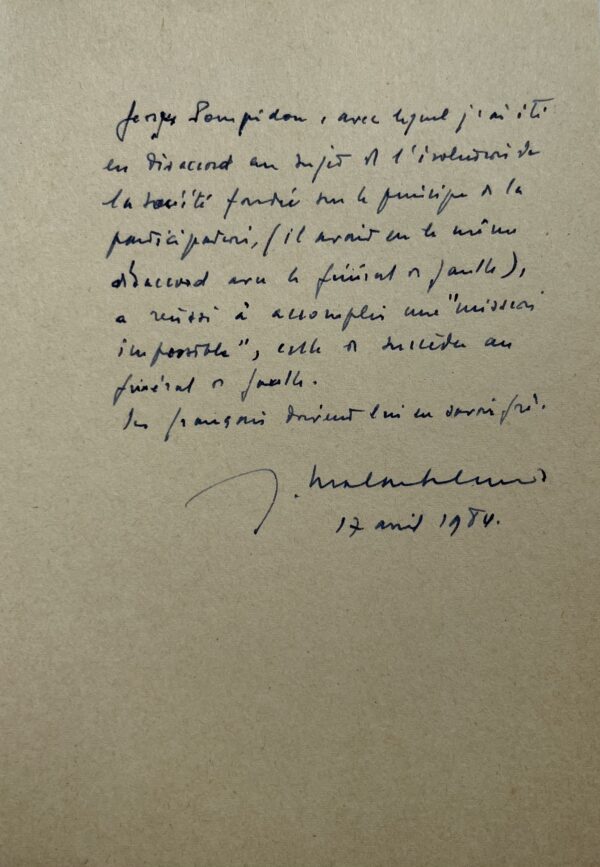 Georges Pompidou, avec lequel j'ai été
en désaccord au sujet de l'évolution de
la société fondée sur le principe de la
participation, (il avait eu le même
désaccord avec le général de Gaulle),
a réussi à accomplir une "mission
impossible", celle de succéder au
général de Gaulle.
Les français doivent lui en savoir gré.
J.
17 avril 1984.